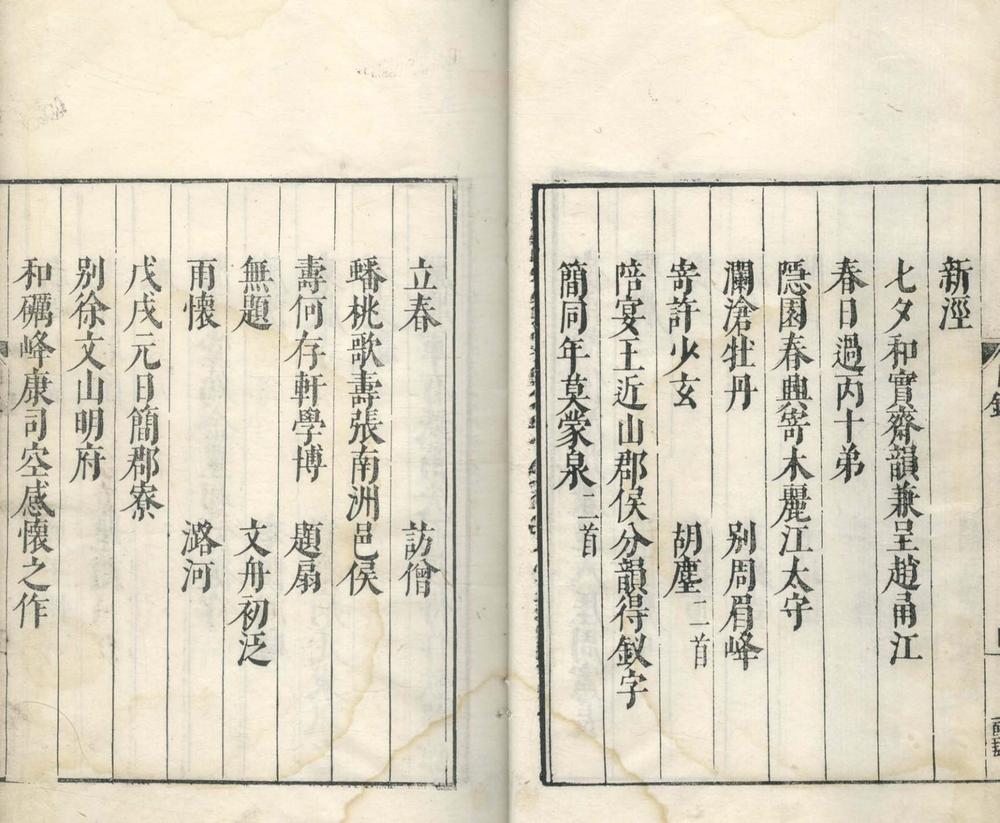 新涇
七夕和實齋韻兼呈趙甬江
春日過內十弟
隱園春興寄木麗江太守
瀾滄牡丹　別周眉峰
寄許少玄　胡塵二首
陪宴王近山郡侯分韻得釵字
簡同年莫蒙泉二首
立春　訪僧
蟠桃歌壽張南洲邑侯
壽何存軒學博　題扇
無題　文舟初泛
雨懷　潞河
戊戌元日簡郡寮
別徐文山明府
和礪峰康司空感懷之作